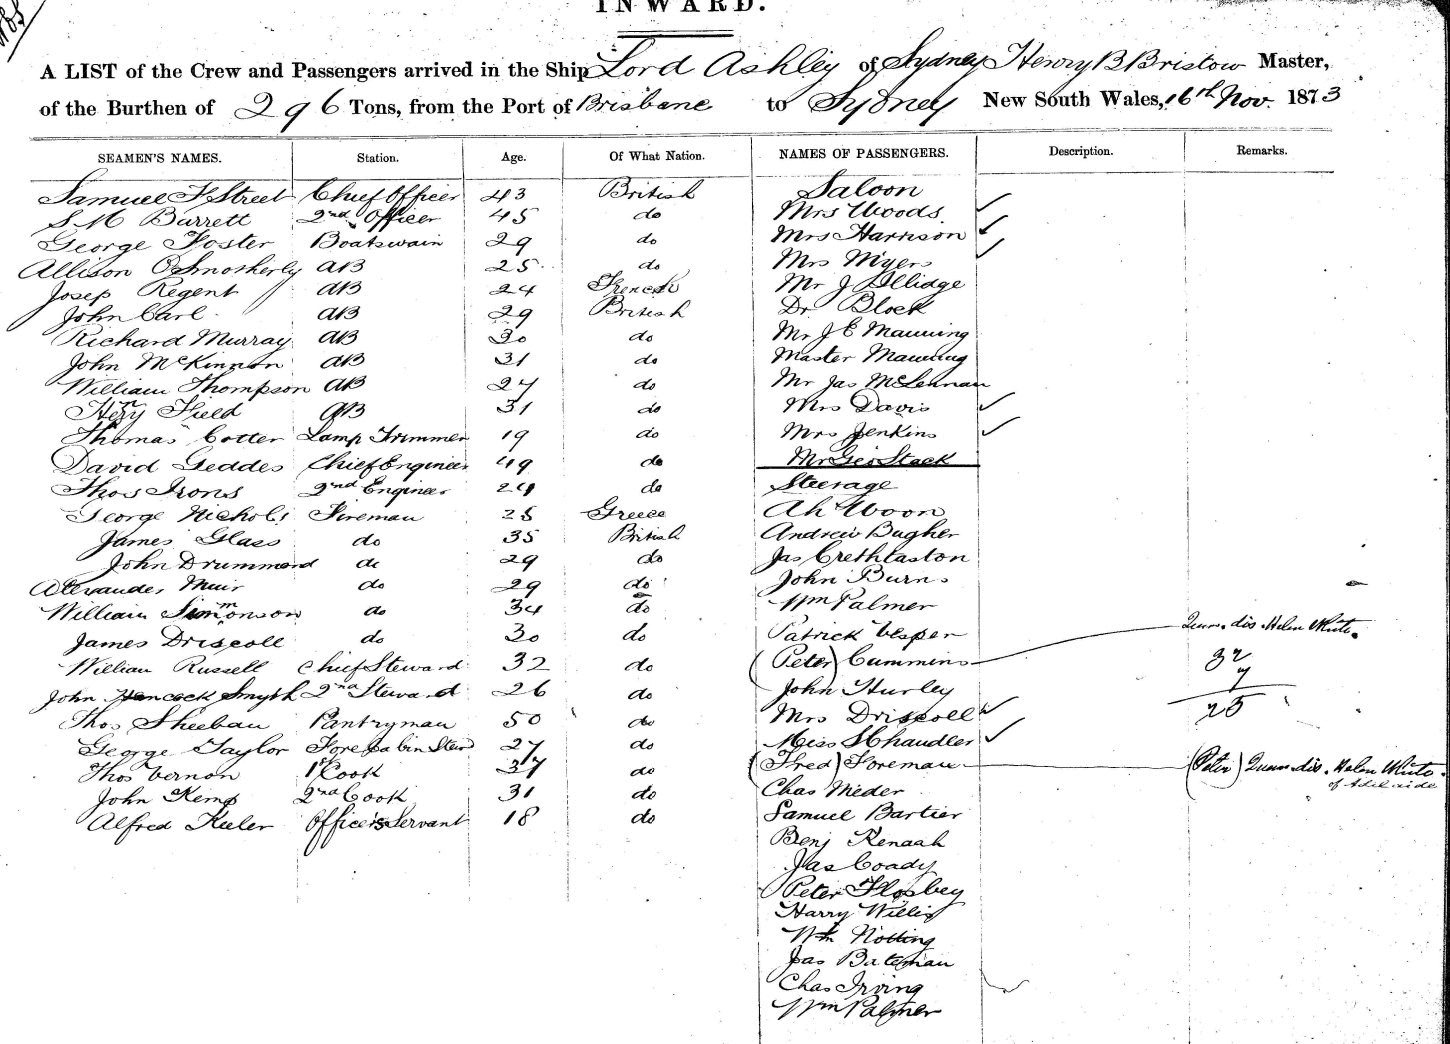 INWARD.
A LIST of the Crew and Passengers arrived in the Ship Lord Ashley of Sydney Henry B Bristow Master,
of the Burthen of 296 Tons, from the Port of Brisbane to Sydney New South Wales, 16th Nov. 1873
SEAMEN'S NAMES. Station. Age. Of What Nation. NAMES OF PASSENGERS. Description. Remarks.
Samuel F Street Chief Officer 43 British Saloon
S M Barrett 2nd Officer 45 do Mrs Woods
George Foster Boatswain 29 do Mrs Harrison
Allison O Smotherly AB 25 do Mrs Myers
Josep Regent AB 24 French Mr J Illidge
John Carl AB 29 British Dr Block
Richard Murray AB 30 do Mr J E Manning
John McKinnon AB 31 do Master Manning
William Thompson AB 27 do Mr Jas McLennan
Henry Field AB 31 do Mrs Davis
Thomas Cotter Lamp Trimmer 19 do Mrs Jenkins
David Geddes Chief Engineer 49 do Mr Geo Stack
Thos Irons 2nd Engineer 24 do Steerage
George Nichols Fireman 25 Greece Ah Woon
James Glass do 35 British Andrew Bugher
John Drummond do 29 do Jas
Alexander Muir do 29 do John Burns
William Simmonson do 34 do Wm Palmer
James Driscoll do 30 do Patrick Vesper dis. Helen White.
William Russell Chief Steward 32 do (Peter) Cummins 32
John Hancock Smyth 2nd Steward 26 do John Hurley 7
25
Thos Sheehan Pantryman 50 do Mrs Driscoll
George Taylor Fore Cabin Stewd 27 do Miss S Chandler
Thos Vernon 1st Cook 37 do (Fred) Foreman (Peter) dis. Helen White.
of Adelaide
John Kemp 2nd Cook 31 do Chas Meder
Alfred Keeler Officers Servant 18 do Samuel Bartier
Benj Kenaah
Jas Coady
Peter
Harry Willis
Wm Notting
Jas Bateman
Chas Irving
Wm Palmer